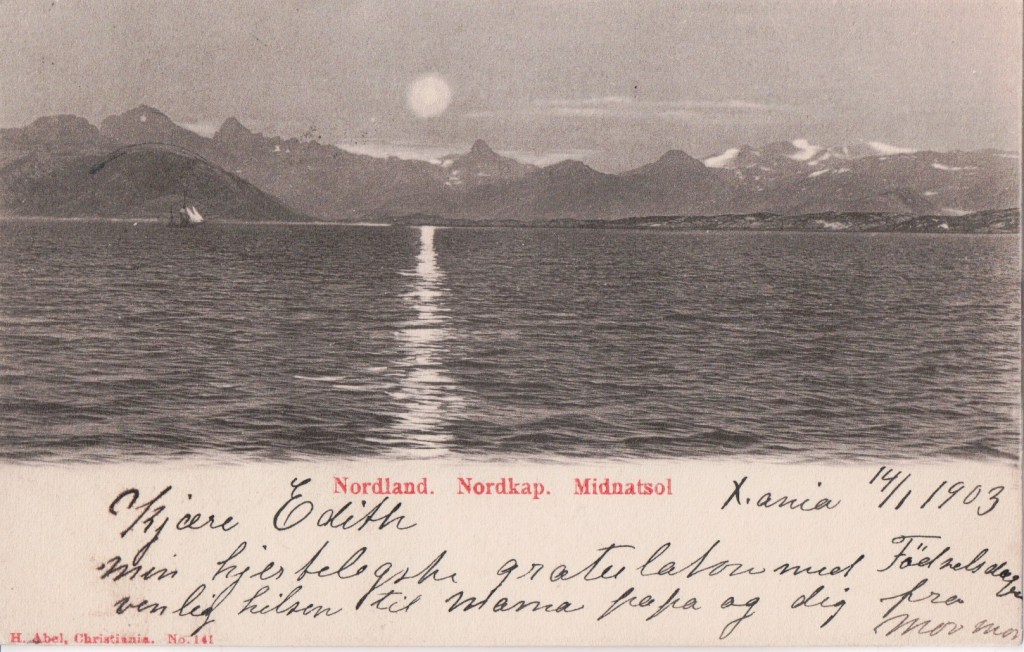 Nordland. Nordkap. Midnatsol
X.ania 14/1 1903
Kjære Edith
min hjerteligste gratulation med Födselsdagen
venlig hilsen til Mama papa og dig fra
Mormor
H. Abel, Christiania. No. 141